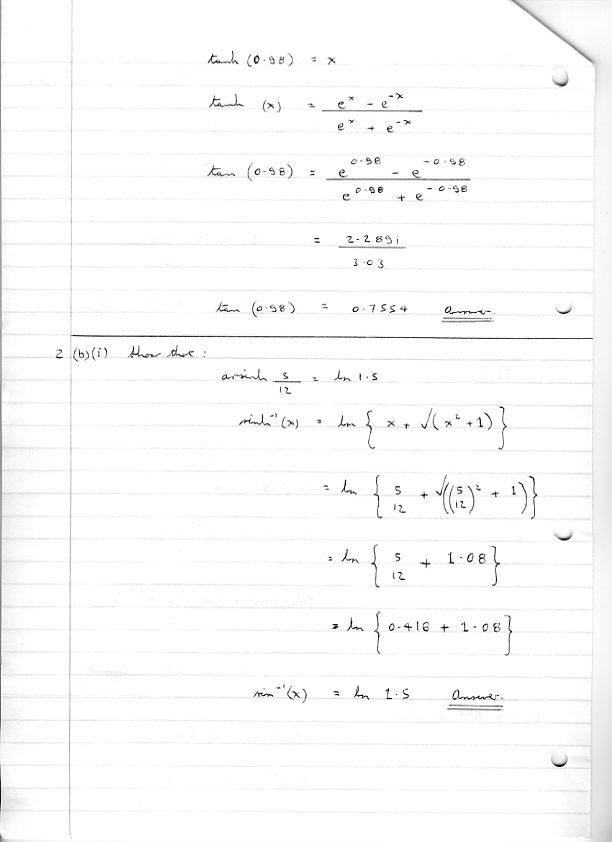 tanh (0.98) = x
tanh (x) = e^x - e^-x / e^x + e^-x
tan (0.98) = e^0.98 - e^-0.98 / e^0.98 + e^-0.98
= 2.2891 / 3.03
tan (0.98) = 0.7554 Answer.
2 (b)(i) Show that :
arsinh 5/12 = ln 1.5
sinh^-1 (x) = ln { x + √(x² + 1) }
= ln { 5/12 + √((5/12)² + 1) }
= ln { 5/12 + 1.08 }
= ln { 0.416 + 1.08 }
sin^-1 (x) = ln 1.5 Answer.